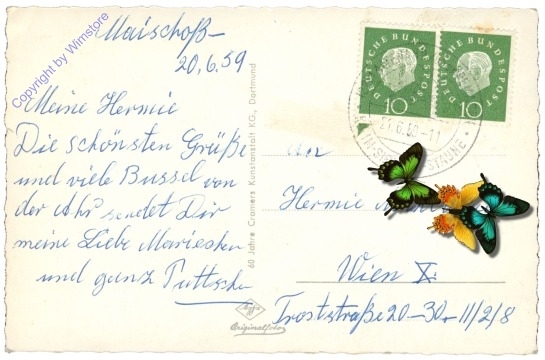 Copyright by Wimstore
Maischoß-
20.6.59
Meine Hermie
Die schönsten Grüße
und viele Bussel von
der Ahr sendet Dir
meine Liebe Marieschen
und ganz
60 Jahre Cramers Kunstanstalt KG., Dortmund
Agfa
Originalfoto
DEUTSCHE BUNDESPOST
10
DEUTSCHE BUNDESPOST
10
21.6.60-11
An
Hermie
Wien X.
Troststraße 20-30-11/2/8